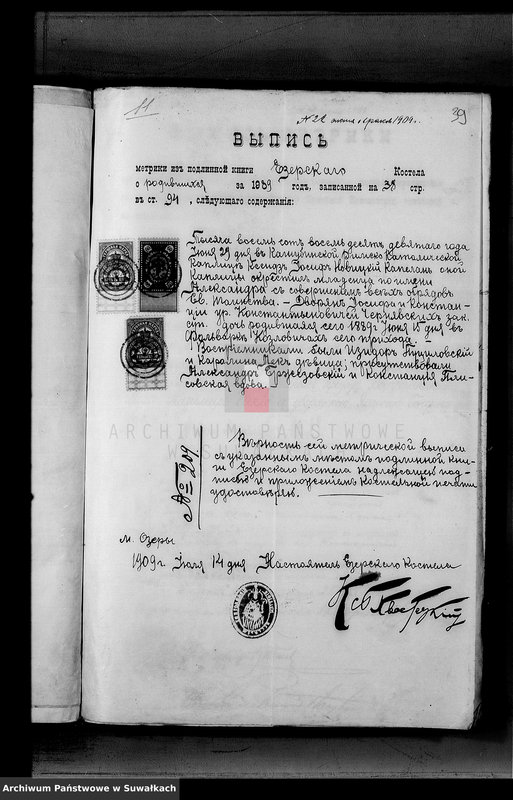 11
39
№ 22 1909 г.
ВЫПИСЬ
метрики изъ подлинной книги Езерскаго Костела
о родившихся за 1889 годъ, записанной на 38 стр.
въ ст. 94, слѣдующаго содержанія:
Тысяча восемь сотъ восемь десятъ девятаго года
Іюня 29 дня въ Римско Католической
каплицѣ Ксендзъ Іосифъ Новицкій Капеланъ оной
каплицы окрестилъ младенца по имени
Александра съ совершеніемъ всѣхъ обрядовъ
Св. Таинства. — Дворянъ Іосифа и Констан-
ціи ур. Константиновичей Чернявскихъ зак.
супр. дочь родившаяся сего 1889 г. Іюня 15 дня въ
Фольваркѣ Козловичахъ сего прихода. —
Воспріемниками были Изидоръ
и Каролина дѣвица; присутствовали
Александръ и Констанція Пли-
совская вдова.
ARCHIWUM PAŃSTWOWE
Вѣрность сей метрической выписи
съ указаннымъ мѣстомъ подлинной кни-
ги Езерскаго Костела надлежащею под-
писью и приложеніемъ костельной печати
удостовѣряю.
№ 209
м. Озеры
1909 г. Іюля 14 дня Настоятель Езерскаго Костела
Кс.
Archiwum Państwowe w Suwałkach